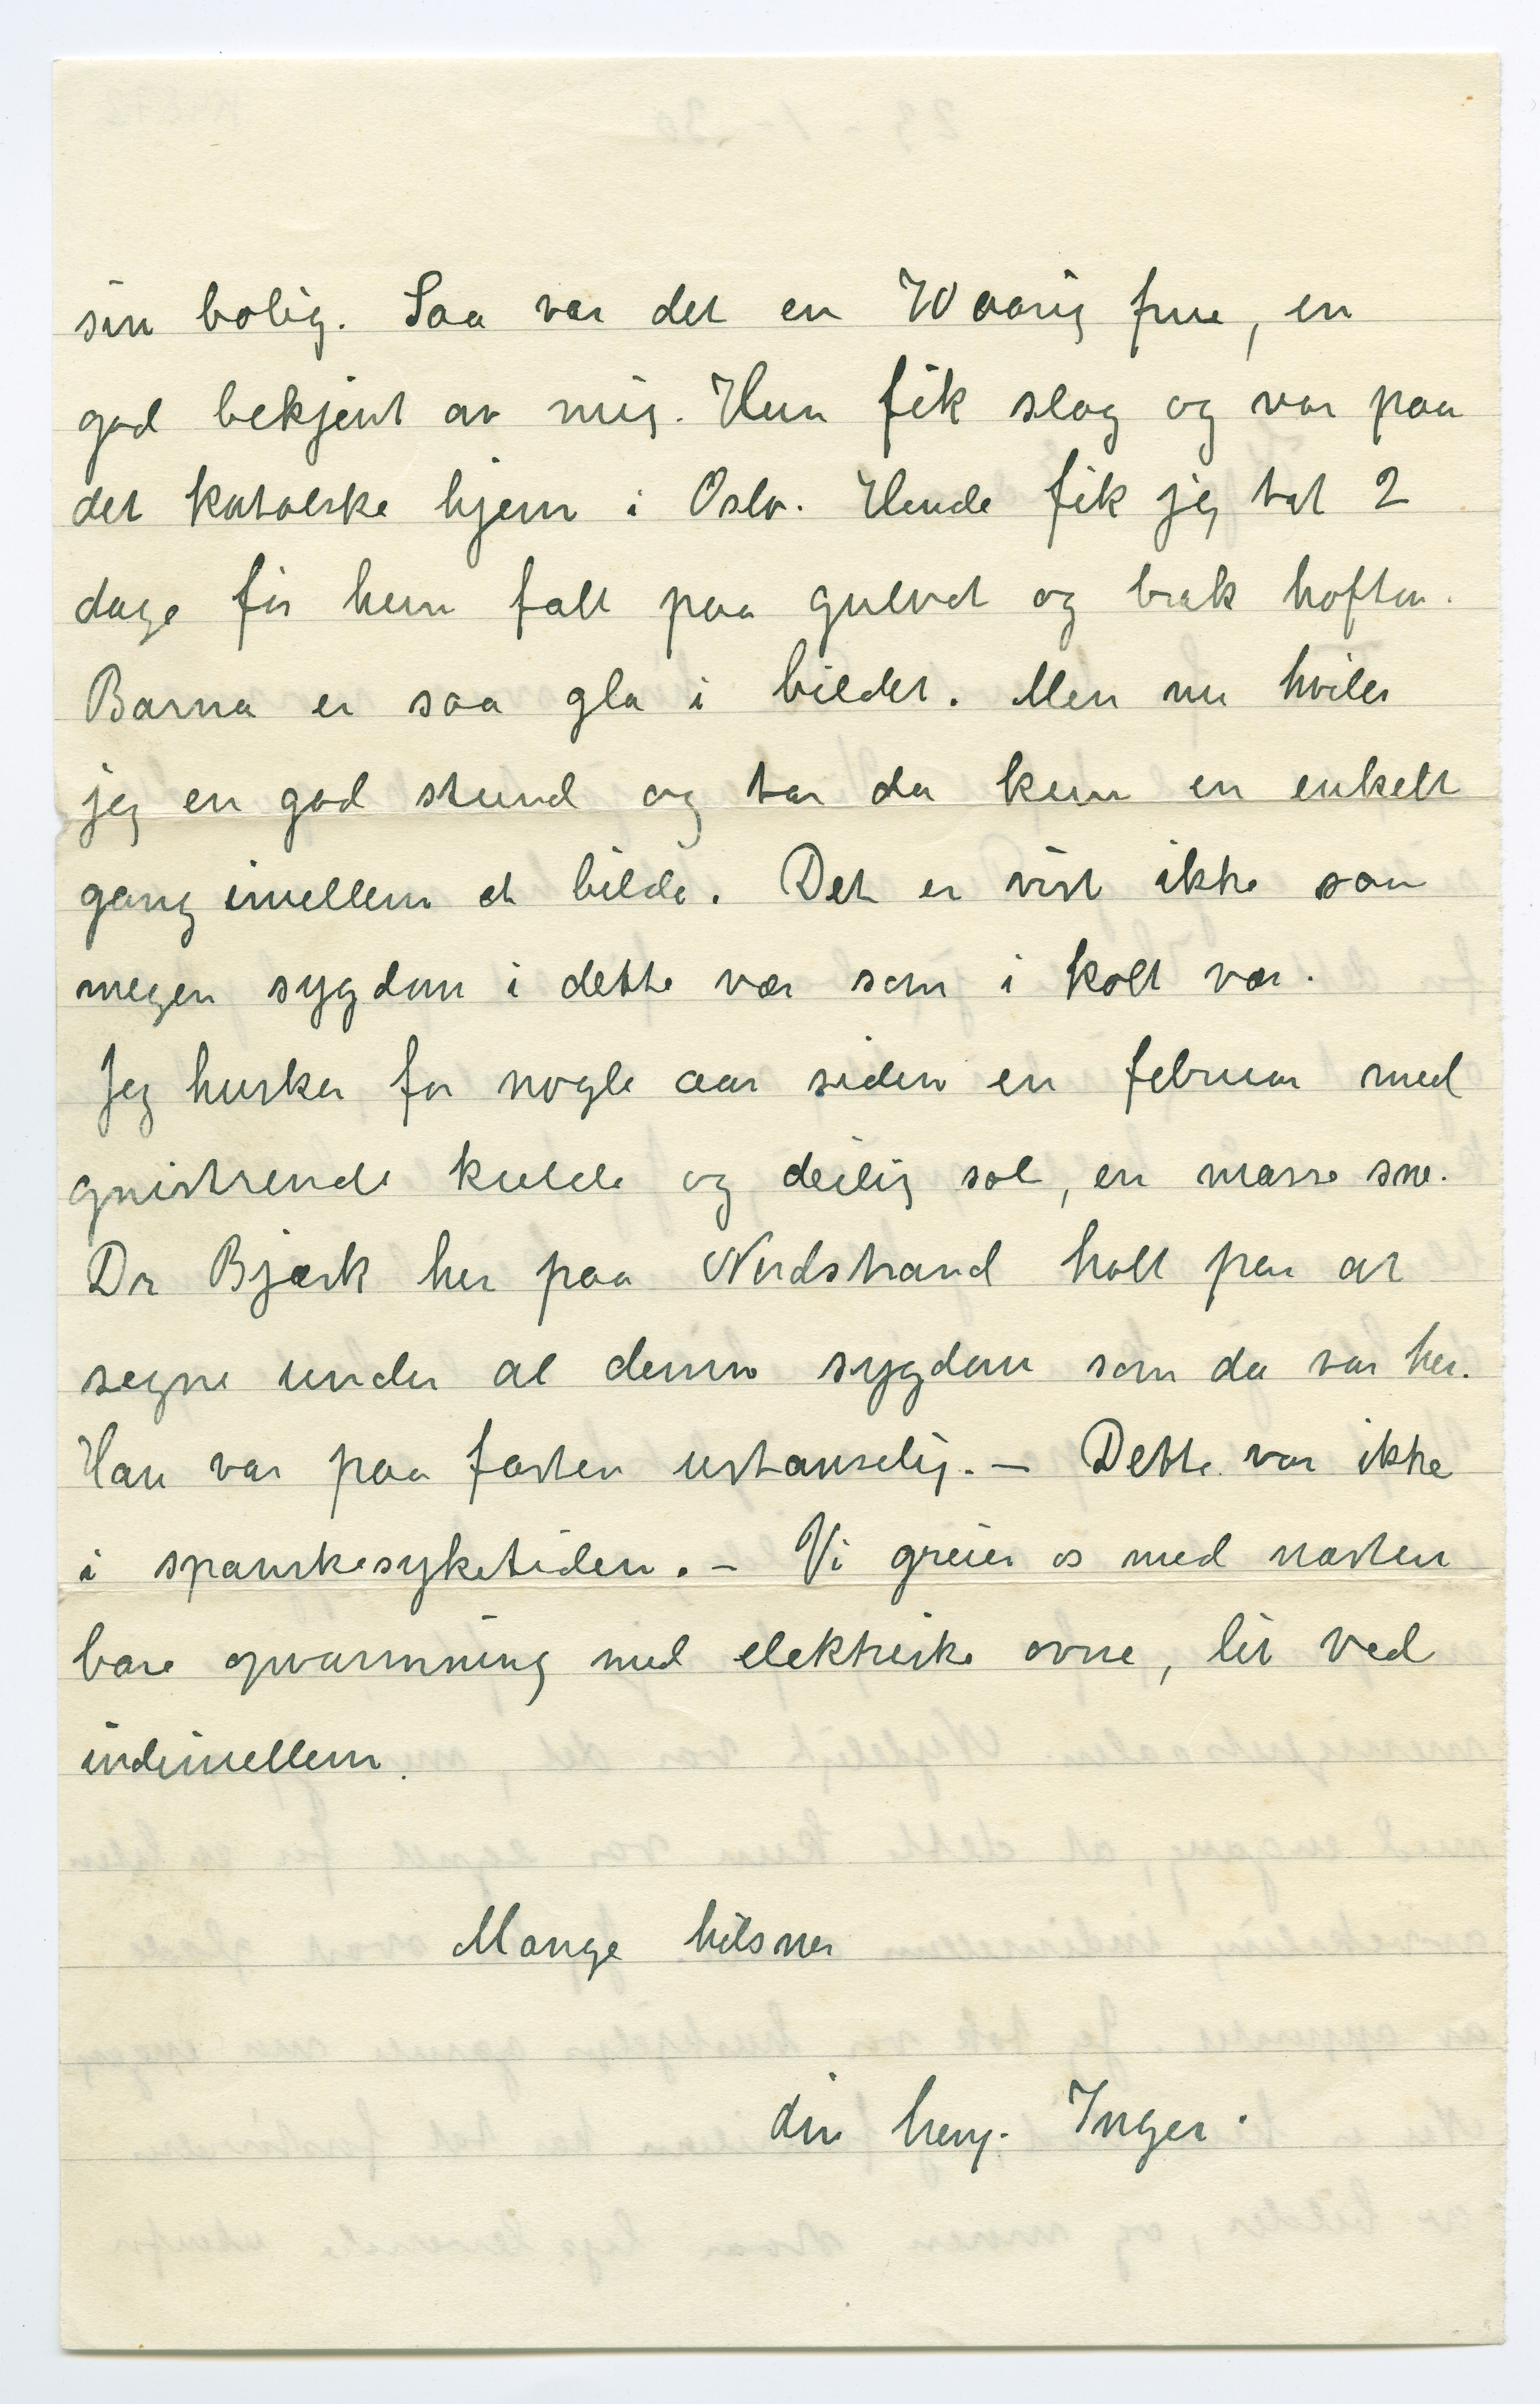 sin bolig. Saa var det en 70 aarig frue, en
god bekjent av mig. Hun fik slag og var paa
det katolske hjem i Oslo. Hende fik jeg tat 2
dage før hun falt paa gulvet og brak hoften.
Barna er saa gla i bildet. Men nu hviler
jeg en god stund og tar da kun en enkelt
gang imellem et bilde. Det er vist ikke saa
megen sygdom i dette vær som i kolt vær.
Jeg husker for nogle aar siden en februar med
gnistrende kulde og deilig sol, en masse sne.
Dr Bjørk her paa Nordstrand holt paa at
segne under al denne sygdom som da var her.
Han var paa farten ustanselig. – Dette var ikke
i spanskesyketiden. – Vi greier os med næsten
bare opvarmning med elektriske ovne, lit ved
indimellem.
Mange hilsner
din heng. Inger.